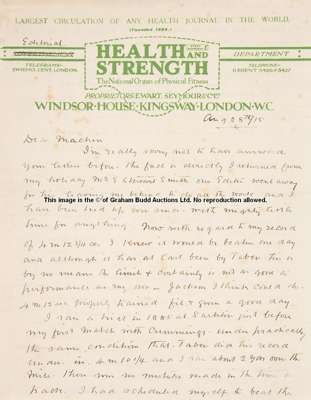 LARGEST CIRCULATION OF ANY HEALTH JOURNAL IN THE WORLD.
(Founded 1892.)
Editorial
DEPARTMENT
HEALTH AND
STRENGTH
The National Organ of Physical Fitness
TELEGRAMS-
LONDON
TELEPHONE-
PROPRIETORS EWART SEYMOUR & Co Ltd
WINDSOR·HOUSE·KINGSWAY·LONDON·W.C.
Aug 25th/15
Dear
I'm really sorry not to have answered
your letter before. The fact is directly I returned from
my holiday our Editor went away
for his leaving me behind to do all the work and I
This image is the © of Graham Budd Auctions Ltd. No reproduction allowed.
have been tied up ever since with mighty little
time for anything. Now with regard to my record
of 4 m 12¾ sec. I knew it would be beaten one day
and although it has at last been by Taber this is
by no means the limit & certainly is not as good a
performance as my own. Jackson I think could do
4 m 10 sec properly trained fit & given a good day
I ran a trial in 1885 at just before
my first match with Cummings under practically
the same conditions that Taber did his record
under in and I ran about 2 yds over the
mile. There was no mistake made in the time or
track. I had scheduled myself to beat the